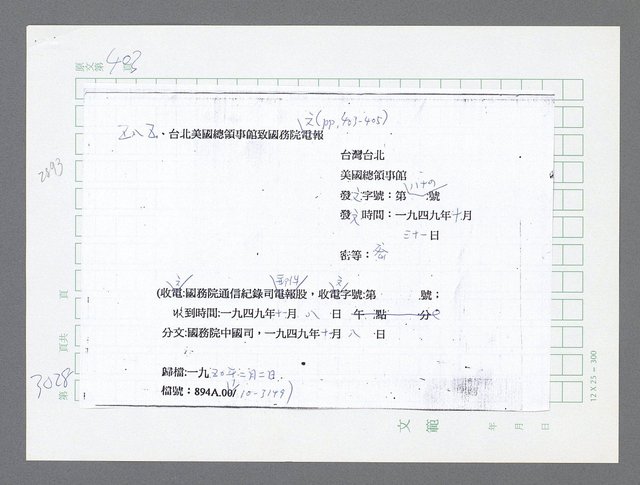 原文第 403 頁
文(pp.403-405)
五八五、台北美國總領事館致國務院電報
2893
台灣台北
美國總領事館
發文字號：第八十四號
發文時間：一九四九年十月
三十一日
密等：密
(收電:國務院通信紀錄司電報股，收電字號:第 號；
收到時間:一九四九年十一月 八 日 午 點 分
分文:國務院中國司，一九四九年十一月 八 日
歸檔:一九五〇年二月二日.
檔號：894A.00/10-3149)
第 3028 頁共 頁
12 X 25 － 300
文範 年 月 日